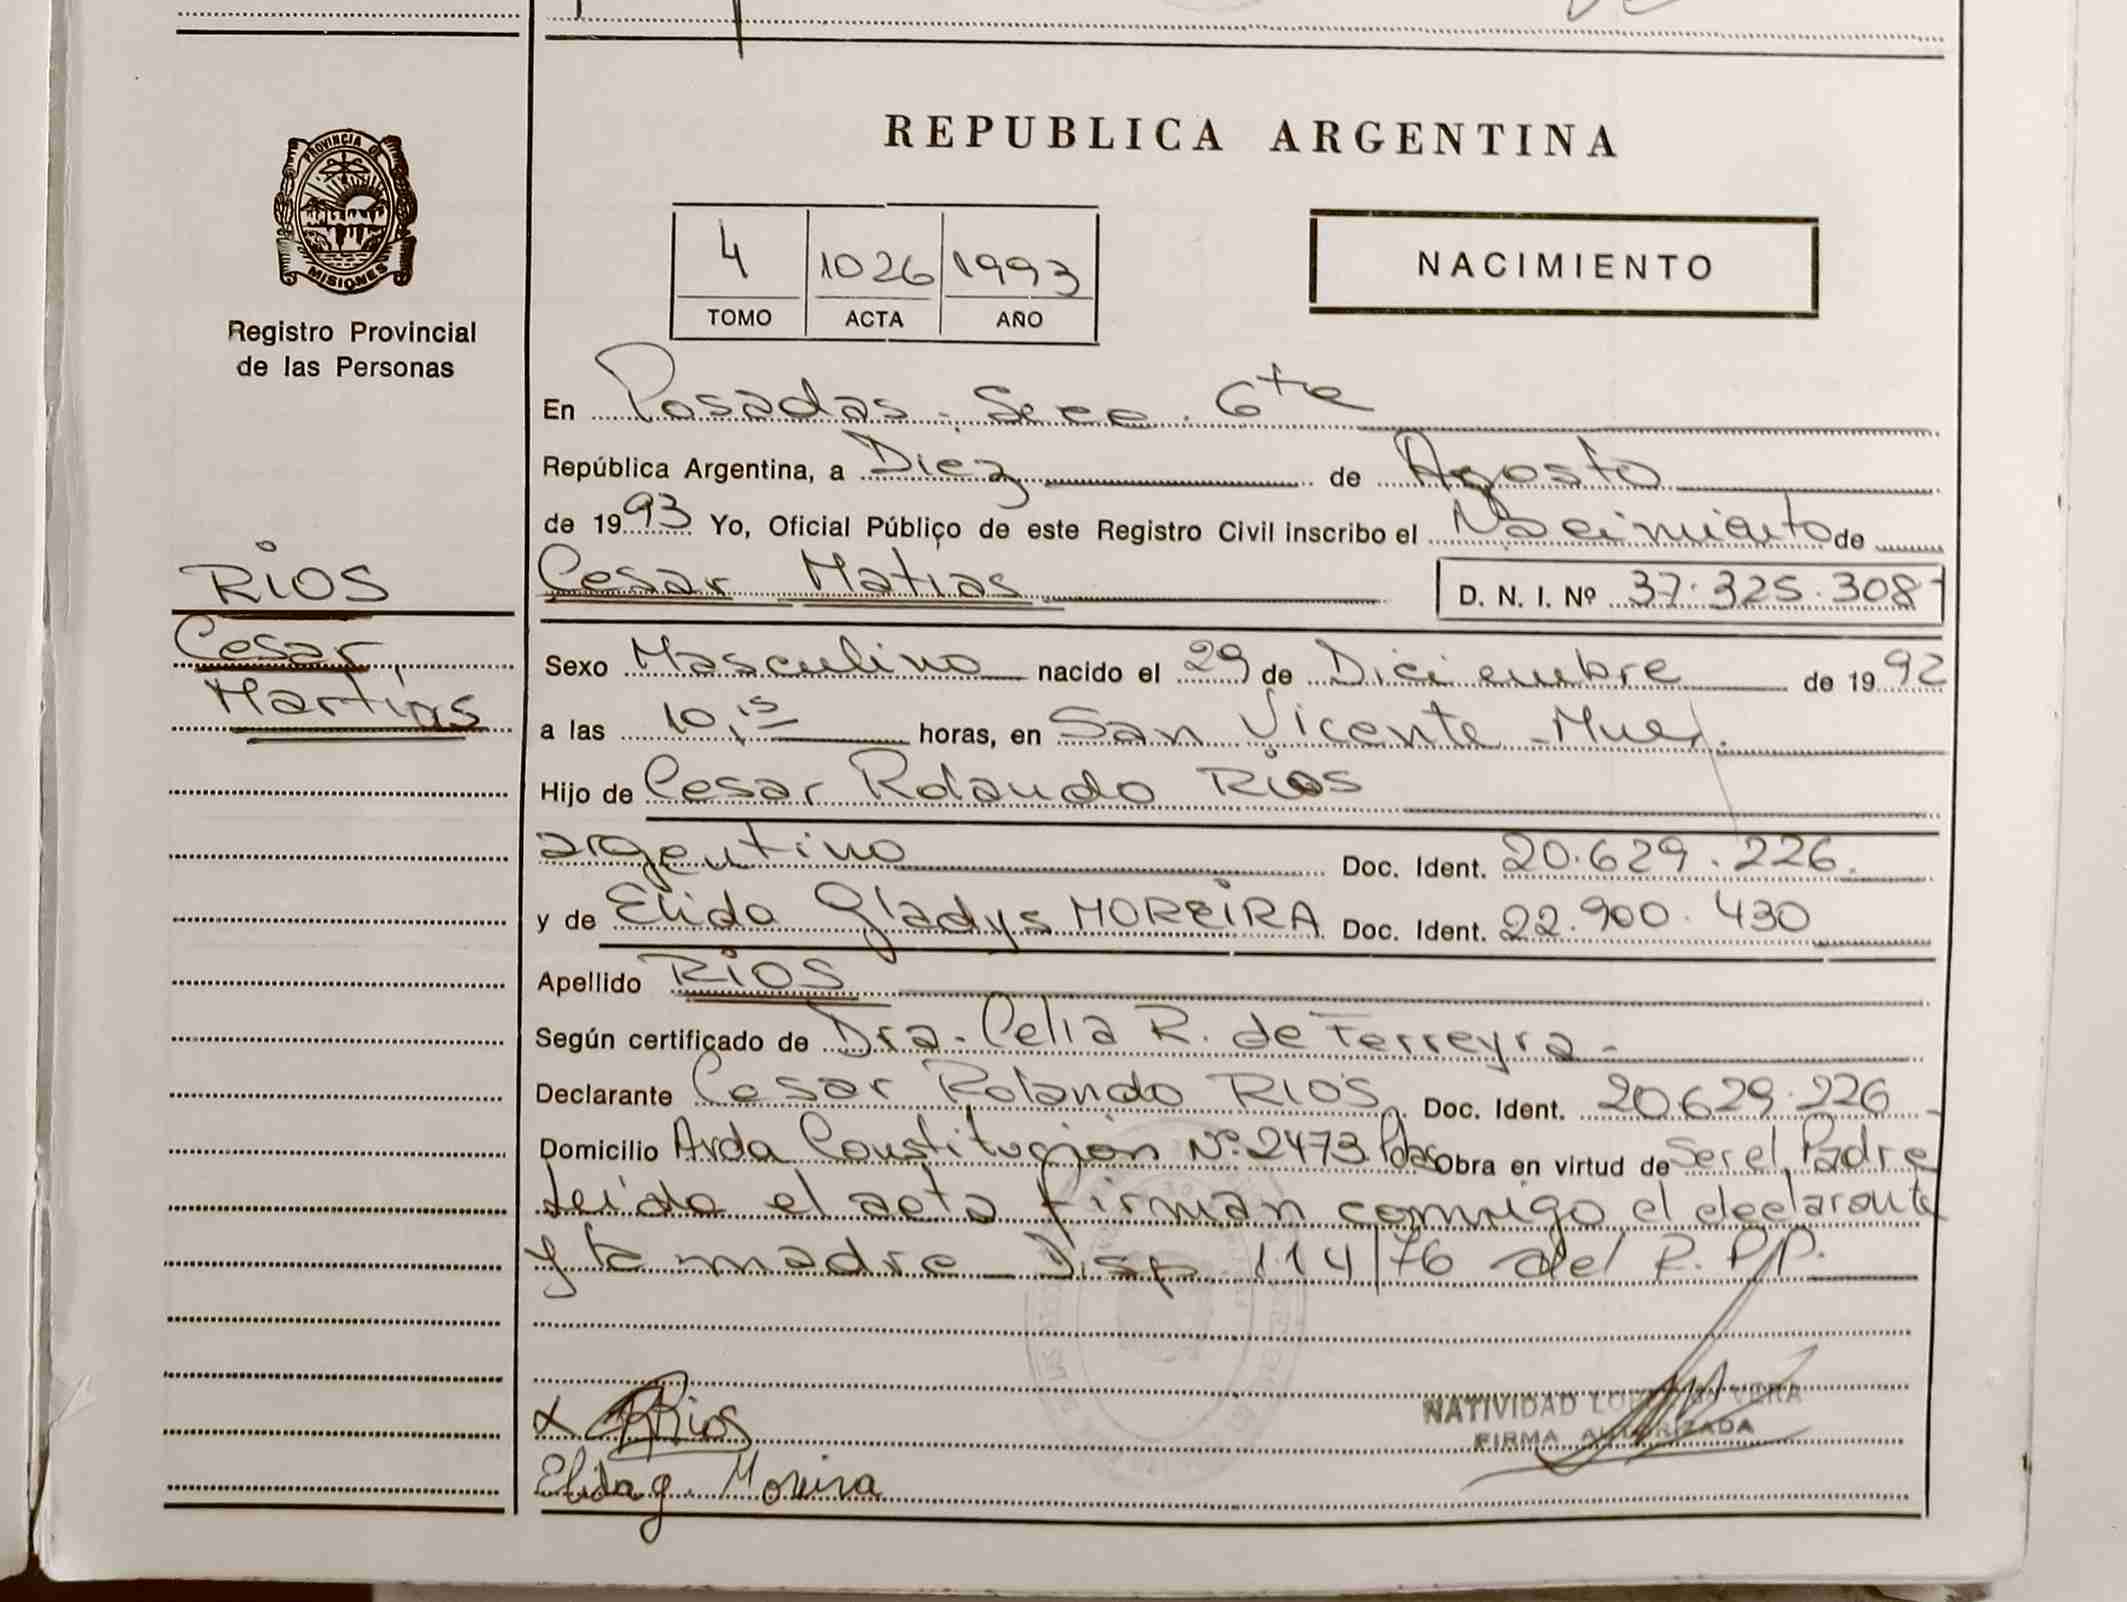 REPUBLICA ARGENTINA
PROVINCIA DE
MISIONES
Registro Provincial
de las Personas
4 1026 1993
TOMO ACTA AÑO
NACIMIENTO
En Posadas. Secc. 6ta
República Argentina, a Diez de Agosto
de 1993 Yo, Oficial Público de este Registro Civil inscribo el Nacimiento de
Cesar Matias D. N. I. Nº 37.325.308
RIOS
Cesar
Martias
Sexo Masculino nacido el 29 de Diciembre de 1992
a las 10,15 horas, en San Vicente
Hijo de Cesar Rolando Rios
argentino Doc. Ident. 20.629.226.
y de Elida Gladys MOREIRA Doc. Ident. 22.900.430
Apellido RIOS
Según certificado de Dra. Celia R. de Ferreyra-
Declarante Cesar Rolando RIOS Doc. Ident. 20629.226
Domicilio Avda Constitución Nº 2473 Pdas Obra en virtud de Ser el Padre
Leida el acta firman conmigo el declarante
y la madre Disp. 114/76 del R.P.P.
NATIVIDAD VERA
x Rios FIRMA AUTORIZADA
Elida g. Moreira